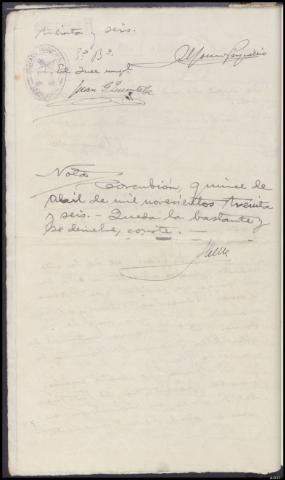 treinta y seis.
Vº Bº
El Juez mupl
Juan
Nota
Corcubión, quince de
Abril de mil novecientos treinta
y seis.- Queda la bastante y
se devuelve, conste.-